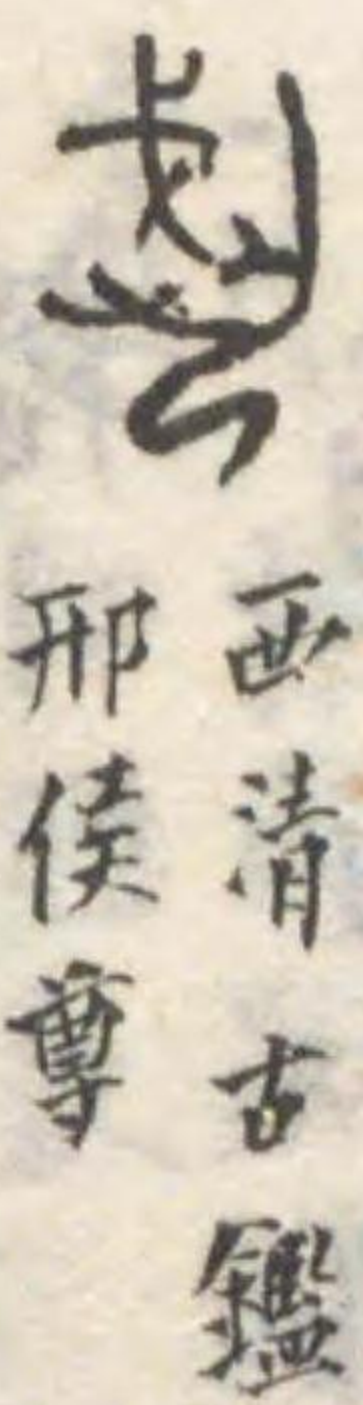 西清古鑑
邢侯尊